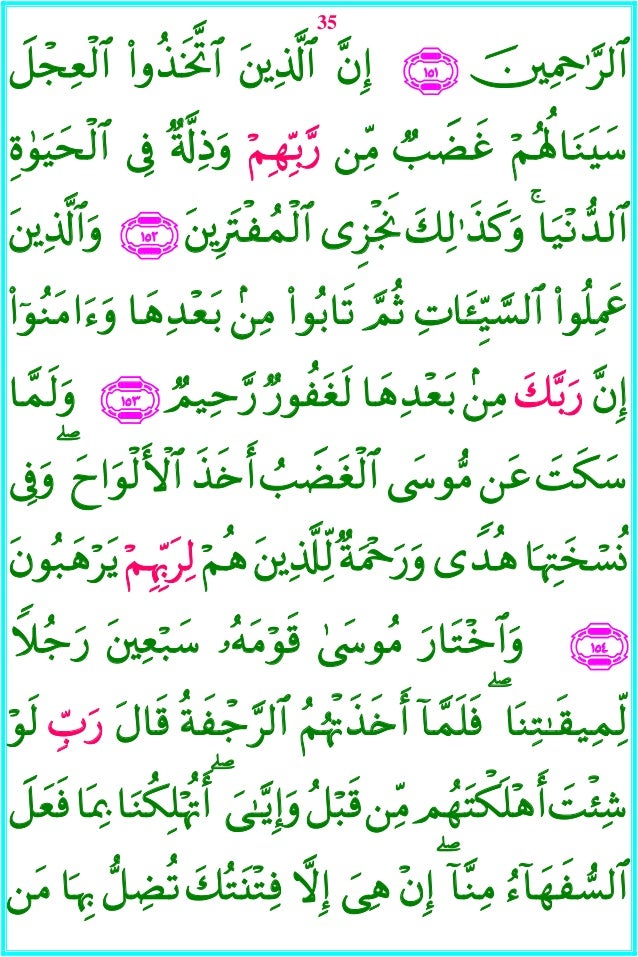 35
ٱلرَّٰحِمِينَ ١٥١ إِنَّ ٱلَّذِينَ ٱتَّخَذُوا۟ ٱلْعِجْلَ
سَيَنَالُهُمْ غَضَبٌ مِّن رَّبِّهِمْ وَذِلَّةٌ فِى ٱلْحَيَوٰةِ
ٱلدُّنْيَا ۚ وَكَذَٰلِكَ نَجْزِى ٱلْمُفْتَرِينَ ١٥٢ وَٱلَّذِينَ
عَمِلُوا۟ ٱلسَّيِّـَٔاتِ ثُمَّ تَابُوا۟ مِنۢ بَعْدِهَا وَءَامَنُوٓا۟
إِنَّ رَبَّكَ مِنۢ بَعْدِهَا لَغَفُورٌ رَّحِيمٌ ١٥٣ وَلَمَّا
سَكَتَ عَن مُّوسَى ٱلْغَضَبُ أَخَذَ ٱلْأَلْوَاحَ ۖ وَفِى
نُسْخَتِهَا هُدًى وَرَحْمَةٌ لِّلَّذِينَ هُمْ لِرَبِّهِمْ يَرْهَبُونَ
١٥٤ وَٱخْتَارَ مُوسَىٰ قَوْمَهُۥ سَبْعِينَ رَجُلًا
لِّمِيقَٰتِنَا ۖ فَلَمَّآ أَخَذَتْهُمُ ٱلرَّجْفَةُ قَالَ رَبِّ لَوْ
شِئْتَ أَهْلَكْتَهُم مِّن قَبْلُ وَإِيَّٰىَ ۖ أَتُهْلِكُنَا بِمَا فَعَلَ
ٱلسُّفَهَآءُ مِنَّآ ۖ إِنْ هِىَ إِلَّا فِتْنَتُكَ تُضِلُّ بِهَا مَن